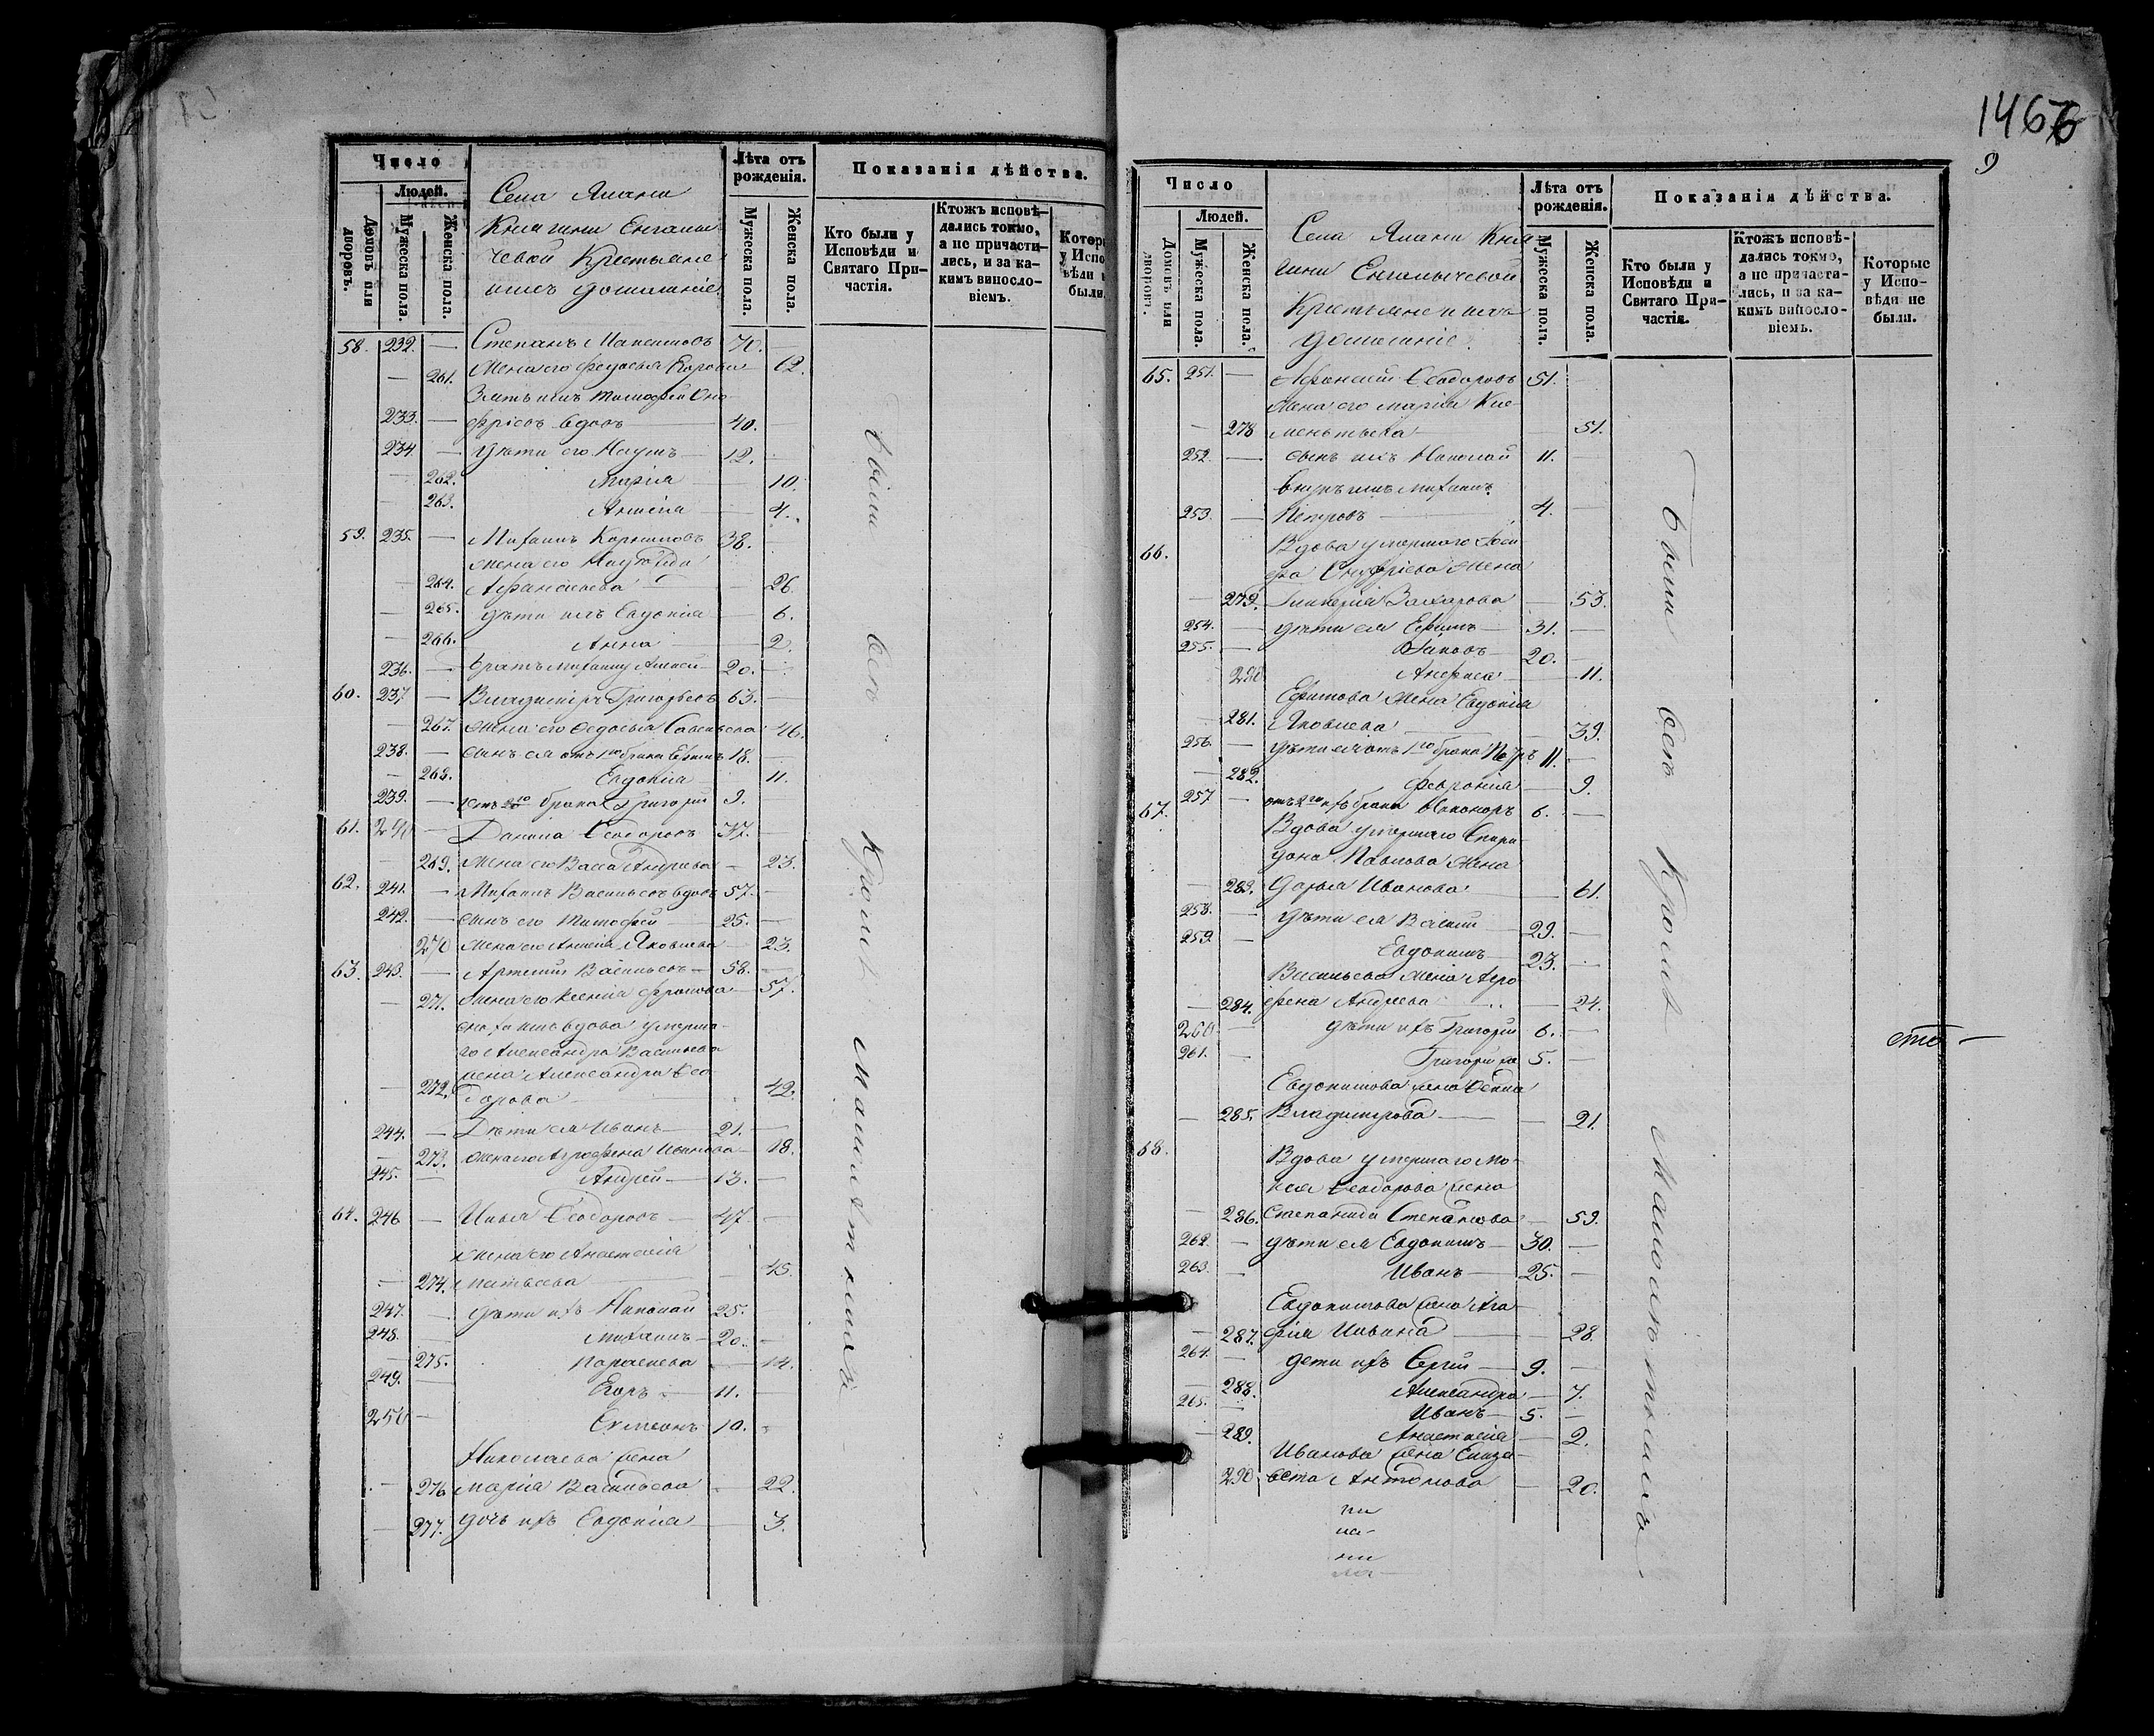 1466
9
Число
Людей.
Домовъ или дворовъ.
Мужеска пола.
Женска пола.
Села Яланы
Княгини Енгалы
чевой Крестьяне
и ихъ домашніе
Лѣта отъ рожденія.
Мужеска пола.
Женска пола.
Показанія дѣйства.
Кто были у Исповѣди и Святаго При-частія.
Ктожъ исповѣ-дались токмо, а не причасти-лись, и за ка-кимъ винносло-віемъ.
58. 232. — Степанъ Максимовъ 70. —
— 261. Жена его Федосья Карпова — 62.
Зять ихъ Тимофей Ону-
233. — фріевъ вдовъ 40. —
234 — Дѣти его Наумъ 12. —
— 262. Марія — 10.
— 263. Анисія — 4.
59. 235. — Михаилъ Корниловъ 38. —
Жена его
— 264. Афанасьева — 26
— 265. дѣти ихъ Евдокія — 6.
— 266. Анна — 2.
236. — братъ Михаилу Алексѣй 20. —
60. 237. — Владиміръ Григорьевъ 63. —
— 267. Жена его Федосья Савельева 46.
238. — сынъ ея отъ 1го брака Ефимъ 18. —
— 268. Евдокія — 11.
239. — отъ 2го брака Григорій 9.
61. 240 — Данила Ѳеодоровъ 37. —
— 269. Жена его Васса Андреева — 23.
62. 241. — Михаилъ Васильевъ вдовъ 57. —
242. — сынъ его Тимофей 25. —
270 Жена его Анисія Яковлева — 23.
63. 243. — Артемій Васильевъ 58. —
— 271. Жена его Ксенія Фролова — 57.
сноха ихъ вдова умерша-
го Александра Васильева
— 272. жена Александра Ѳео-
дорова 42.
244. — Дѣти ея Иванъ 21. —
— 273. жена его Агрофена Иванова — 18.
245. — Андрей 13. —
64. 246 — Илья Ѳеодоровъ 47. —
жена его Анастасія
— 274. Матвѣева — 45.
247. — дѣти ихъ Николай 25.
248. — Михаилъ 20. —
— 275. Параскева — 14.
249. — Егоръ 11. —
250 — Симеонъ 10. —
Николаева жена
— 276 Марія Васильева — 22.
— 277. дочь ихъ Евдокія — 3.
были всѣ кромѣ Малолѣтнихъ
Число
Людей.
Домовъ или дворовъ.
Мужеска пола.
Женска пола.
Села Яланы Кня-
гини Енгалычевой
Крестьяне и ихъ
домашніе.
Лѣта отъ рожденія.
Мужеска пола.
Женска пола.
Показанія дѣйства.
Кто были у Исповѣди и Святаго При-частія.
Ктожъ исповѣ-дались токмо, а не причасти-лись, и за ка-кимъ винносло-віемъ.
Которые у Испо-вѣди не были.
65. 251. — Афанасій Ѳеодоровъ 51. —
Жена его Марія Кле-
— 278 ментьева — 51.
252. — сынъ ихъ Николай 11. —
внукъ ихъ Михаилъ
253. — Петровъ 4. —
66. Вдова умершаго Іоси-
фа Онуфріева жена
— 279. Гликерія Захарова — 53.
254. — дѣти ея Ефимъ 31. —
255. — Яковъ 20. —
280 Анфиса — 11.
Ефимова жена Евдокія
— 281. Яковлева — 39.
256. — дѣти ея отъ 1го брака Петръ 11. —
— 282. Февронія — 9.
257 — отъ 2го ихъ брака Никаноръ 6. —
67. Вдова умершаго Спири-
дона Павлова жена
— 283. Дарья Иванова — 61.
258. — дѣти ея Василій 29. —
259 — Евдокимъ 23. —
Васильева жена Агро-
— 284. фена Андреева — 24.
260 — дѣти ихъ Григорій 6. —
261. — Григорій же 5. —
Евдокимова жена
— 285. Владимірова — 21.
68. Вдова умершаго Мо-
исея Ѳеодорова жена
— 286. Степанида Степанова — 59.
262. — дѣти ея Евдокимъ 30. —
263. — Иванъ 25. —
Евдокимова жена Ага-
— 287. фія Ильина — 28.
264. — дѣти ихъ Сергій 9. —
— 288. Александра — 7.
265. — Иванъ 5. —
— 289. Анастасія — 2.
Иванова жена Елиза-
290 вета Антонова — 20.
были всѣ Кромѣ Малолѣтнихъ